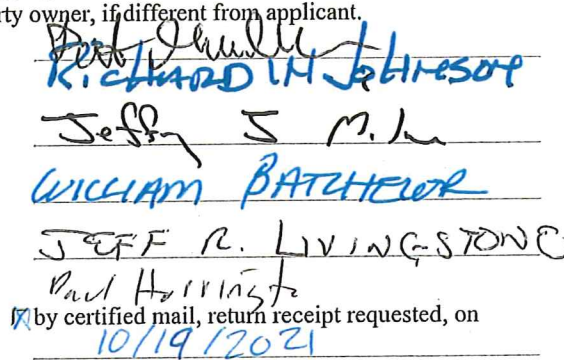 rty owner, if different from applicant.
RICHARD W JOHNSON
Jeffry J
WILLIAM BATCHELOR
JEFF R. LIVINGSTONE
Paul Harringto
by certified mail, return receipt requested, on
10/19/2021